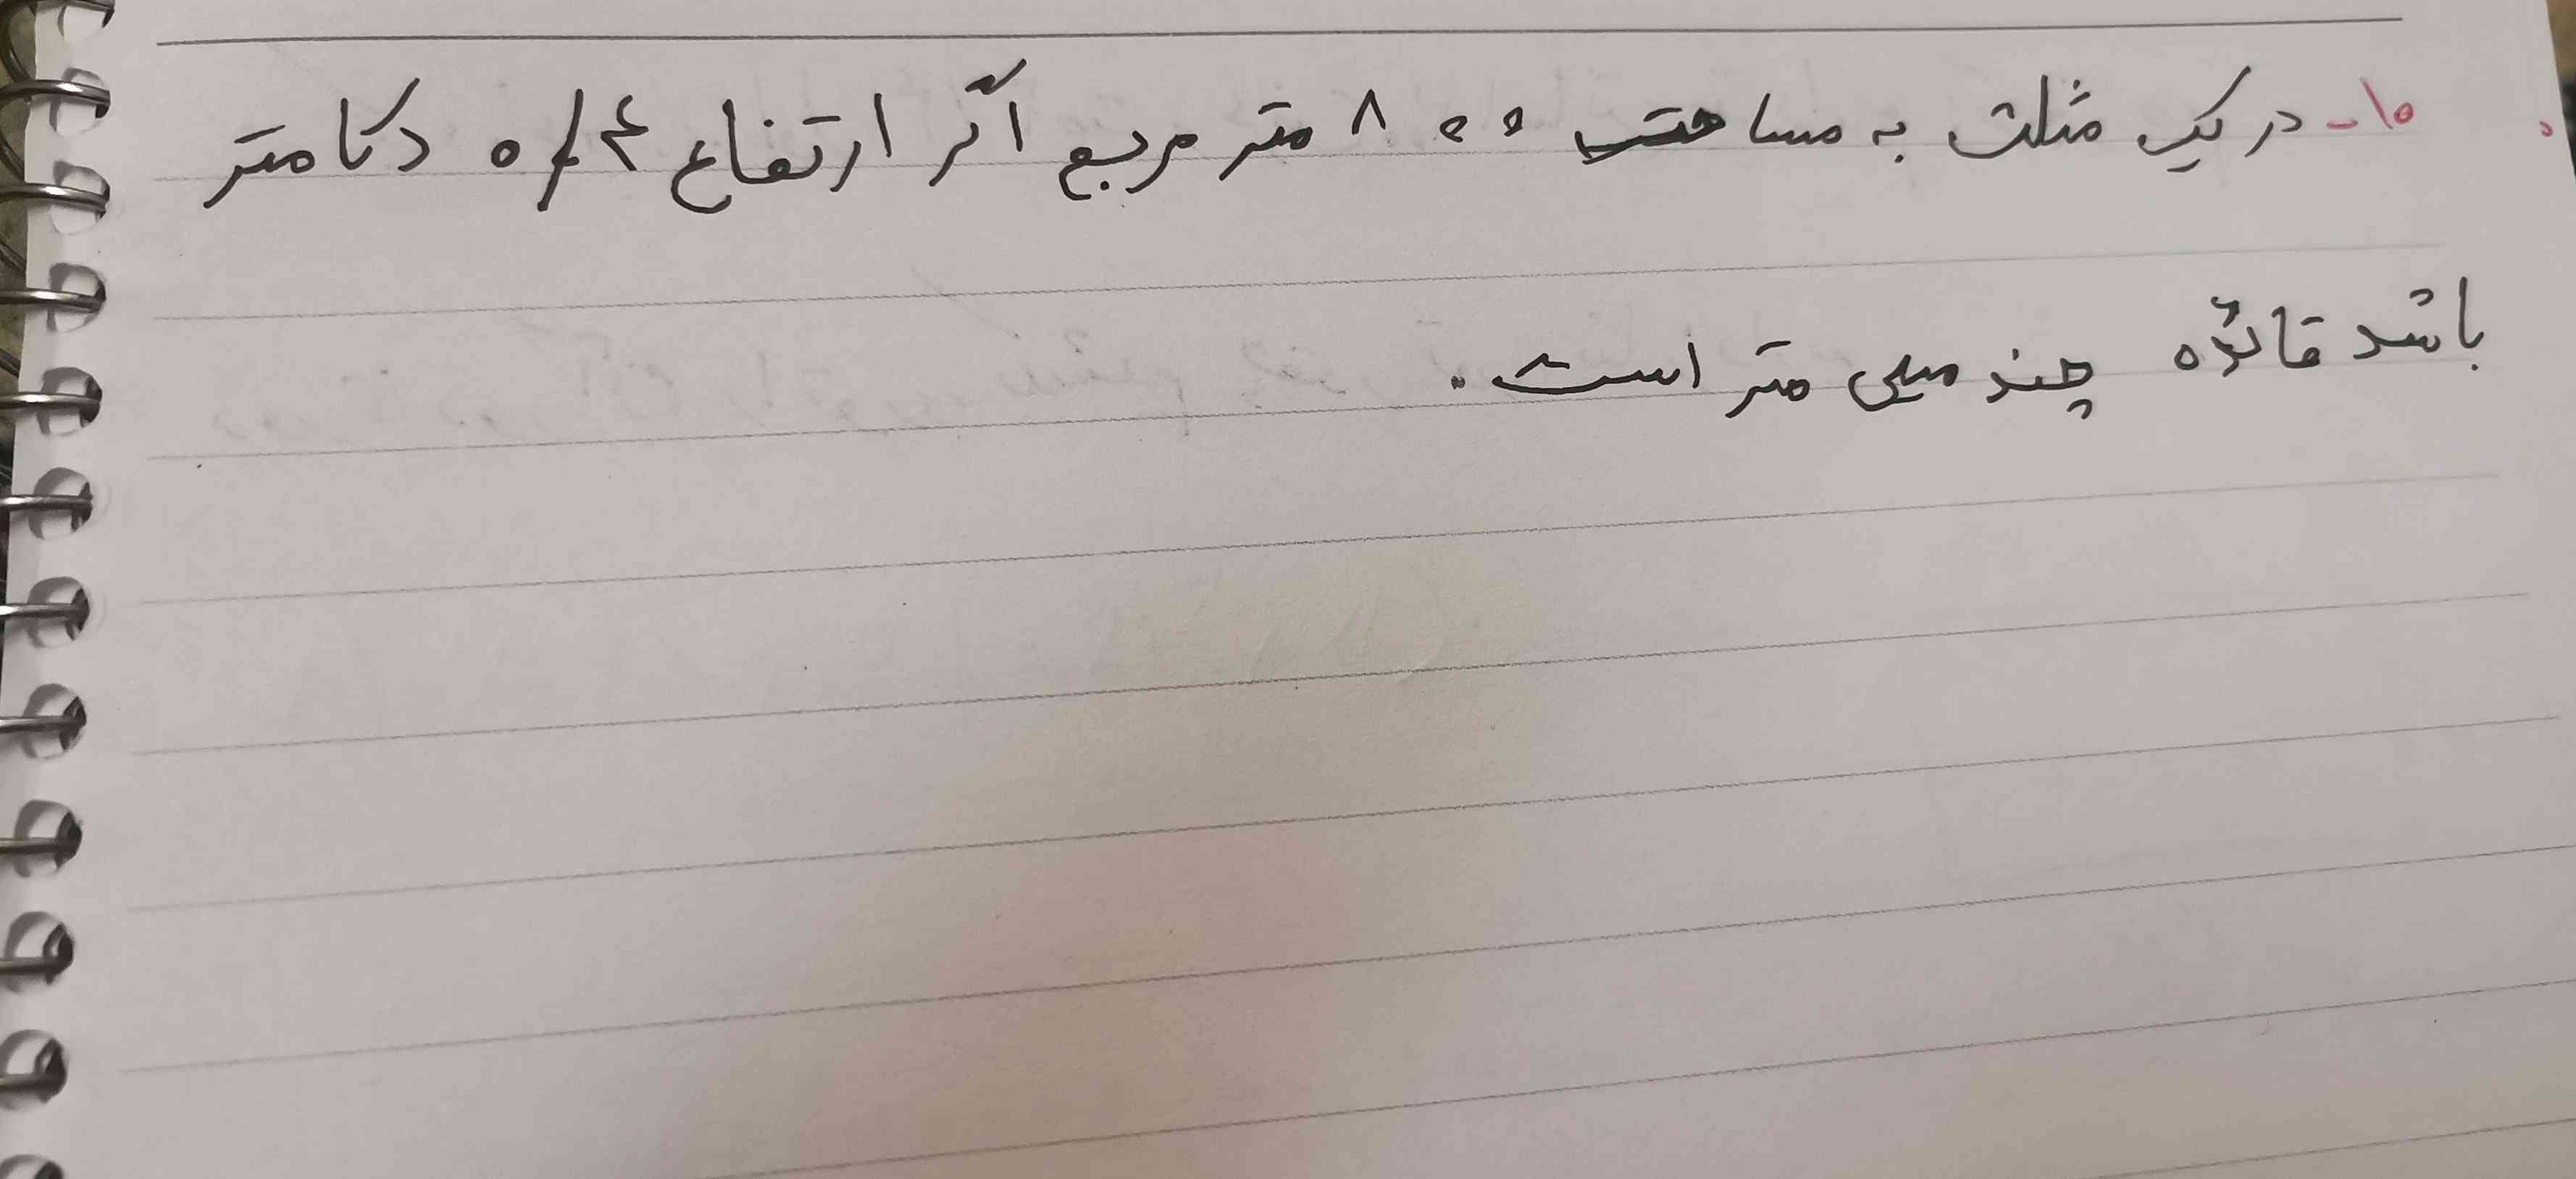 ۱۰- در یک مثلث به مساحت ۸۰۰ متر مربع اگر ارتفاع ۰/۴ دکامتر
باشد قائده چند میلی متر است.